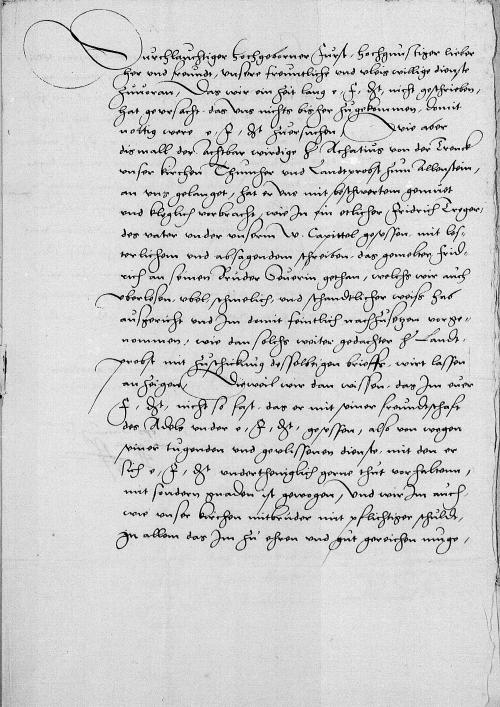 Durchlauchtiger hochgeborner furst, hochgunstiger lieber
her und freundt, unsere freuntliche und vleis willige dienste
zuuoran, Das wir ein zeit lang e, f, dt, nicht geschrieben,
hat geursacht, das uns nichts bisher zugekommen, domit
nottig were e, f, dt zuersuchen, Wie aber
dismall der achtbar wirdige h, Achatius von der Trenck
unser kirchen Thumher und Landtprobst zum Allenstein,
an uns gelanget, hat er uns mit beschwertem gemuet
und kleglich vorbracht, wie Im ein etlicher Fridrich Treger,
des vater under unserm w. Capittel gesessen, mit les-
terlichem und absagendem schreiben, das gemelter Frid-
rich an seinen Bruder Seuerin gethan, welchs wir auch
uberlesen, ubel, schmelich, und schandtlicher weis hab
ausgericht und Im domit feintlich nachzusetzen vorge-
nommen, wie dan solchs weiter gedachter h Landt-
probst mit zuschickung desselbigen brieffs, wirt lassen
anzeigen, Dieweil wir dan wissen, das Im euer
f, dt, nicht so fast, das er mit seiner freundtschaft
des Adels under e, f, dt, gesessen, also von wegen
seiner tugenden und gevlissenen dienste, mit den er
sich e, f, dt undertheniglich gerne thut vorhaltenn,
mit sondern gnaden ist gewogen, Und wir Im auch
wie unser kirchen mitbruder mit pflichtiger schuldt,
In allem das Im zu ehren und gut gereichen muge,